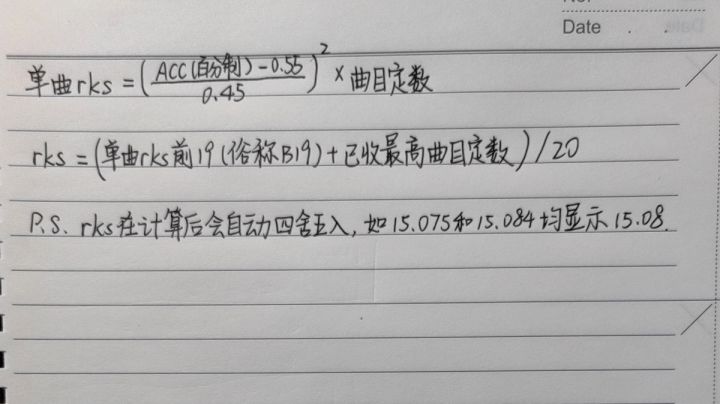 Date . .
单曲rks = (ACC(百分制)-0.55 / 0.45)² × 曲目定数
rks = (单曲rks前19(俗称B19)+已收最高曲目定数)/20
P.S. rks在计算后会自动四舍五入, 如15.075和15.084均显示15.08.